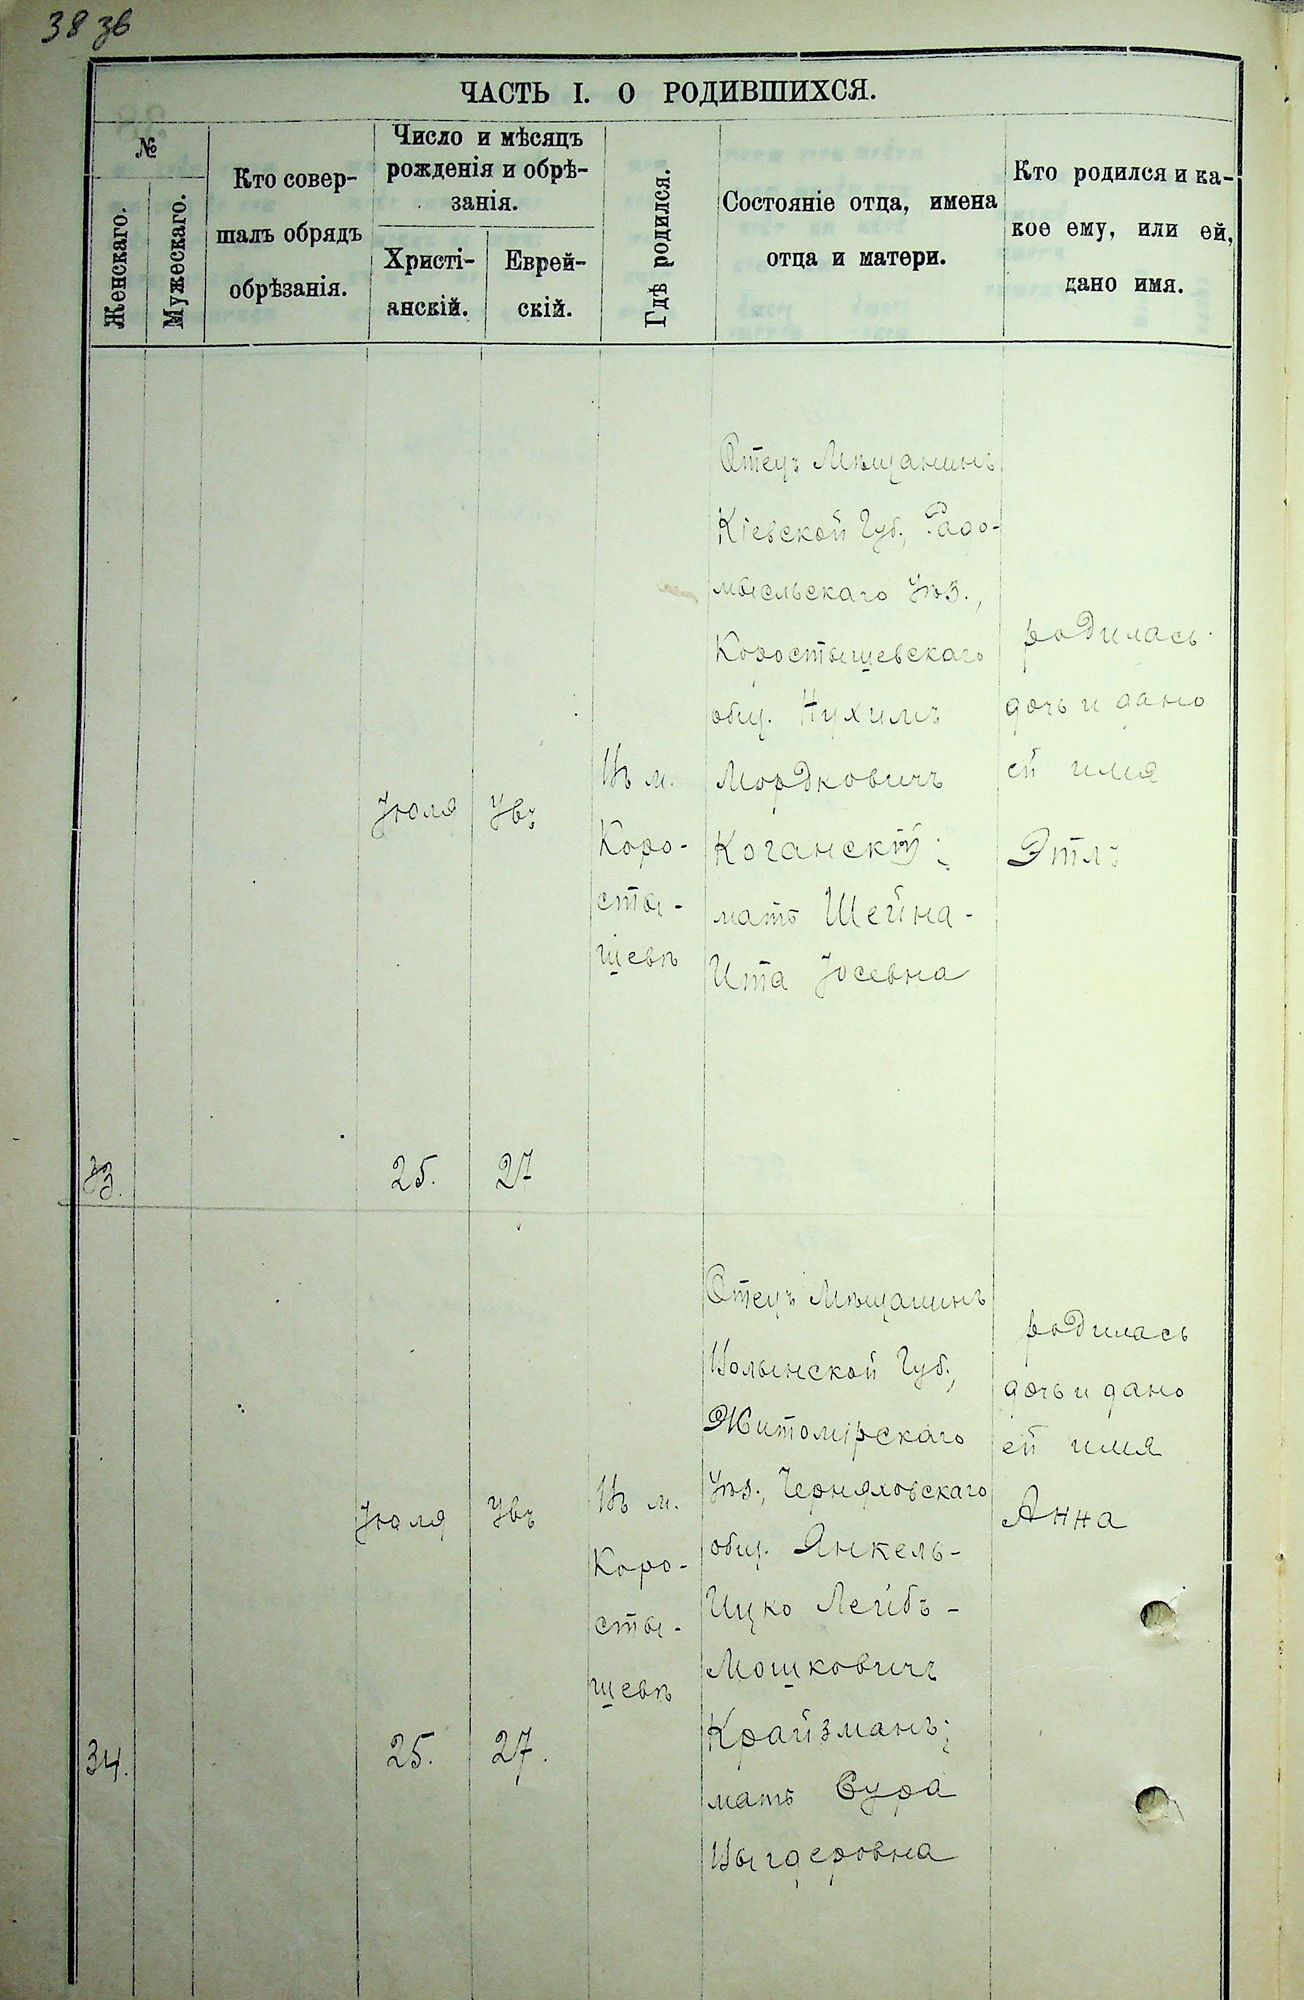 38 зв
ЧАСТЬ I. О РОДИВШИХСЯ.
№
Женскаго.
Мужескаго.
Кто совер-
шалъ обрядъ
обрѣзанія.
Число и мѣсяцъ
рожденія и обрѣ-
занія.
Христі-
анскій.
Еврей-
скій.
Гдѣ родился.
Состояніе отца, имена
отца и матери.
Кто родился и ка-
кое ему, или ей,
дано имя.
33.
Іюля
25.
27
Въ м.
Коро-
сты-
шевѣ
Отецъ Мѣщанинъ
Кіевской Губ., Радо-
мысльскаго Уѣз.,
Коростышевскаго
общ. Нухимъ
Мордковичъ
Коганскій;
мать Шейна-
Ита Іосевна
родилась
дочь и дано
ей имя
Этля
34.
Іюля
25.
27.
Въ м.
Коро-
сты-
шевѣ
Отецъ Мѣщанинъ
Волынской Губ.,
Житомірскаго
Уѣз., Черняховскаго
общ. Янкель-
Ицко Лейбъ-
Мошковичъ
Крайзманъ;
мать Сура
родилась
дочь и дано
ей имя
Анна